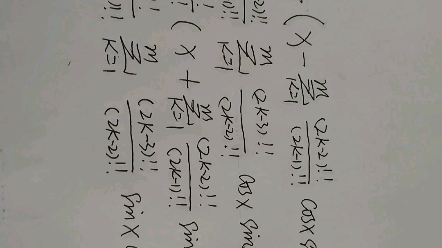 (x - \sum_{k=1}^{m} \frac{(2k-2)!!}{(2k-1)!!} cosx
\sum_{k=1}^{m} \frac{(2k-3)!!}{(2k-2)!!} cosx sin
(x + \sum_{k=1}^{m} \frac{(2k-2)!!}{(2k-1)!!} sin
\sum_{k=1}^{m} \frac{(2k-3)!!}{(2k-2)!!} sinx